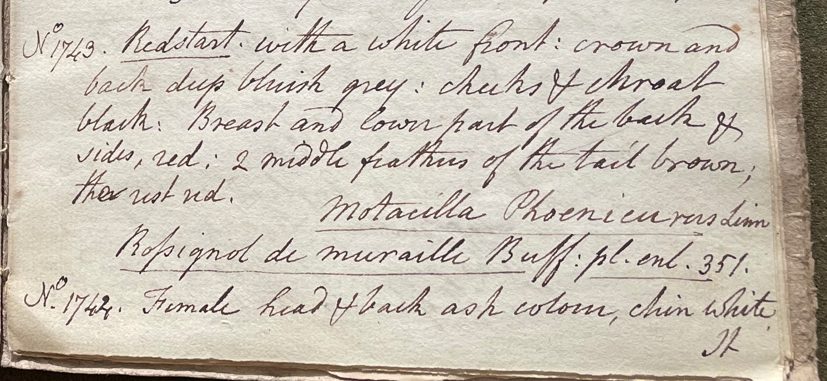 No 1743. Redstart. with a white front: crown and
back deep bluish grey: cheeks & throat
black: Breast and lower part of the back &
sides, red: 2 middle feathers of the tail brown;
the rest red.
Motacilla Phoenicurus Linn
Roſsignol de muraille Buff: pl. enl. 351.
No. 1744. Female head & back ash colour, chin white